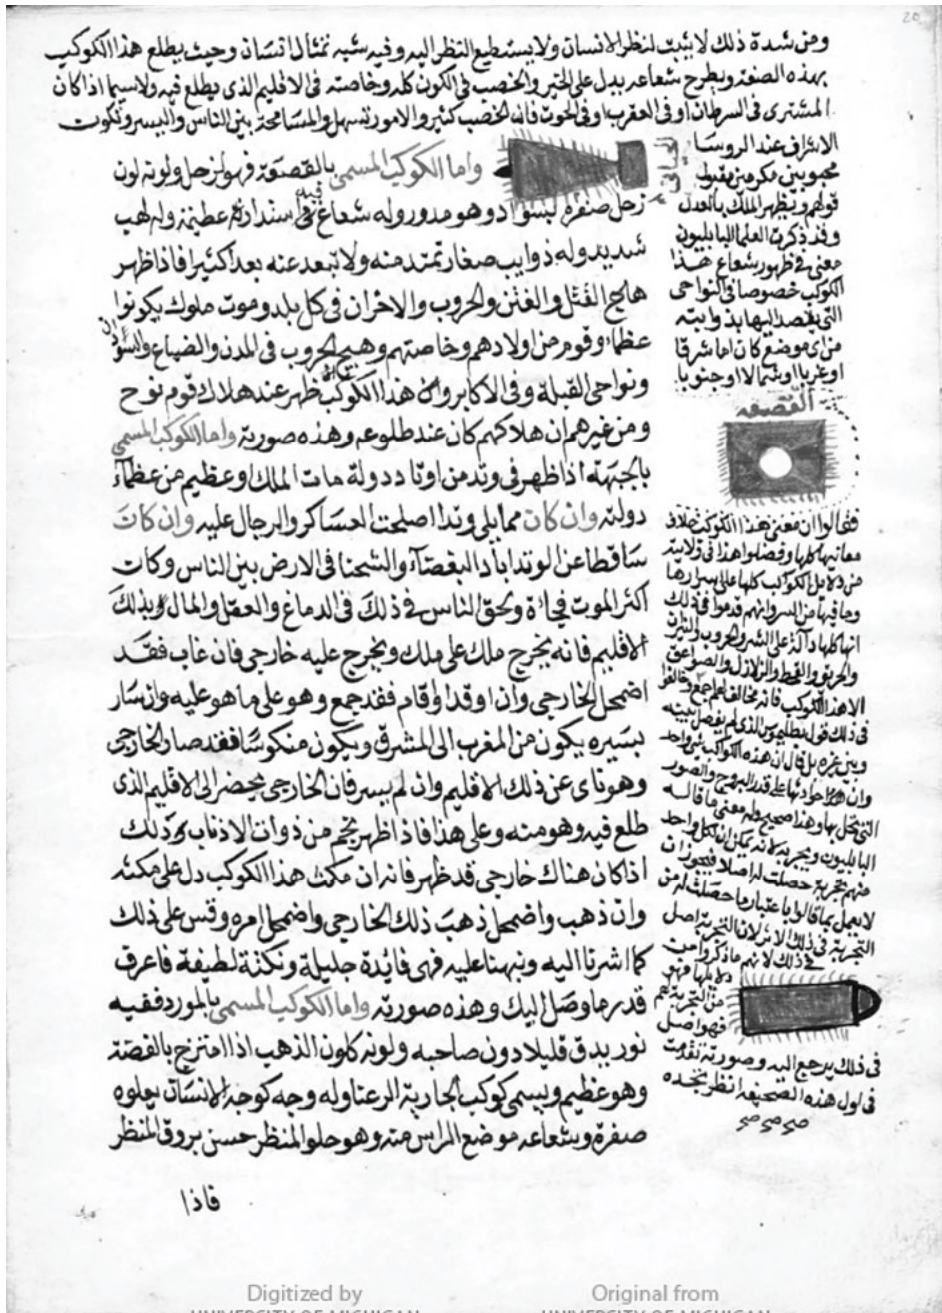 20
ومن شدة ذلك لا يثبت لنظر الانسان ولا يستطيع النظر اليه وفيه شبه تمثال انسان وحيث يطلع هذا الكوكب
بهذه الصفة ويطرح شعاعه يدل على الخير والخصب في الكون كله وخاصته في الاقليم الذي يطلع فيه ولا سيما اذا كان
المشتري في السرطان او في العقرب او في الحوت فان الخصب كثير والامور تسهل والمسامحة بين الناس والبسر وتكون
واما الكوكب المسمى بالقصعة فهو لزحل ولونه لون
زحل صفرة بسواد وهو مدور وله شعاع فيه في استدارة عظيمة وله لهب
شديد وله ذوايب صغار تمتد منه ولا تبعد عنه بعدا كثيرا فاذا ظهر
هاج القتل والفتن والحروب والاحزان في كل بلد وموت ملوك يكونوا
عظماء وقوم من اولادهم وخاصتهم وهيج الحروب في المدن والضياع والسودان
ونواحي القبلة وفي الاكابر وان هذا الكوكب ظهر عند هلاك قوم نوح
ومن غيرهم ان هلاكهم كان عند طلوعه وهذه صورته واما الكوكب المسمى
بالجبهة اذا ظهر في وتد من اوتاد دولة مات الملك او عظيم من عظماء
دولته وان كان مما يلي وتدا اصلحت العساكر والرجال عليه وان كان
ساقطا عن الوتد اباد البغضآء والشحنا في الارض بين الناس وكان
اكثر الموت فجاءة ولحق الناس في ذلك في الدماغ والعقل والمال وبذلك
الاقليم فانه يخرج ملك على ملك ويخرج عليه خارجي فان غاب فقد
اضمحل الخارجي وان اوقد او قام فقد جمع وهو على ما هو عليه وان سار
بسيره يكون من المغرب الى المشرق ويكون منكوسا فقد صار الخارجي
وهو ناى عن ذلك الاقليم وان لم يسر فان الخارجي يحضر الى الاقليم الذي
طلع فيه وهو منه وعلى هذا فاذا ظهر نجم من ذوات الاذناب وذلك
اذا كان هناك خارجي قد ظهر فانه ان مكث هذا الكوكب دل على مكثه
وان ذهب واضمحل ذهب ذلك الخارجي واضمحل امره وقس على ذلك
كما اشرنا اليه ونبهنا عليه فهي فايدة جليلة ونكتة لطيفة فاعرف
قدر ما وصل اليك وهذه صورته واما الكوكب المسمى بالمورد ففيه
نور يدق قليلا دون صاحبه ولونه كلون الذهب اذا امتزج بالفضة
وهو عظيم ويسمى كوكب الجارية الرعنا وله وجه كوجه الانسان يعلوه
صفرة وبشعاعه موضع الراس منه وهو حلو المنظر حسن بروق المنظر
فاذا
الاشراف عند الروسا
محبوبين مكرمين مقبول
قولهم ويظهر الملك بالعدل
وقد ذكرت العلما البابليون
معنى في ظهور شعاع هذا
الكوكب خصوصا في النواحي
التي يقصد اليها بذوابته
من اى موضع كان اما شرقا
او غربا او شمالا او جنوبا
القصعه
فقالوا ان معنى هذا الكوكب خلاف
معانيها كلها وفضلوا هذا في دلايته
من دلايل الكواكب كلها على اسرارها
وما فيها من السر وانهم قدموا في ذلك
انها كلها دآلة على الشر والحروب
والحريق والقحط والزلازل والصواعق
الا هذا الكوكب فانه مخالف لهم
في ذلك قول بطليموس الذي لم يفصل بينه
وبين غيره بل قال ان هذه الكواكب
وان حوادثها على قدر البروج والصور
التي تحل بها وهذا صحيح وله معنى ما قاله
البابليون وتجربه لانه يمكن ان لكل واحد
منهم تجربة حصلت له اصلا فيجوز ان
لا يعمل بما قالوا باعتبار ما حصلت له من
التجربة في ذلك الا ان التجربة اصل
في ذلك لانهم ما ذكروا من
دلايلها فهو
من التجربة لهم
فهو اصل
في ذلك يرجع اليه وصورته تقدمت
في اول هذه الصحيفه انظر تجده
صح صح صح
Digitized by
UNIVERSITY OF MICHIGAN
Original from
UNIVERSITY OF MICHIGAN